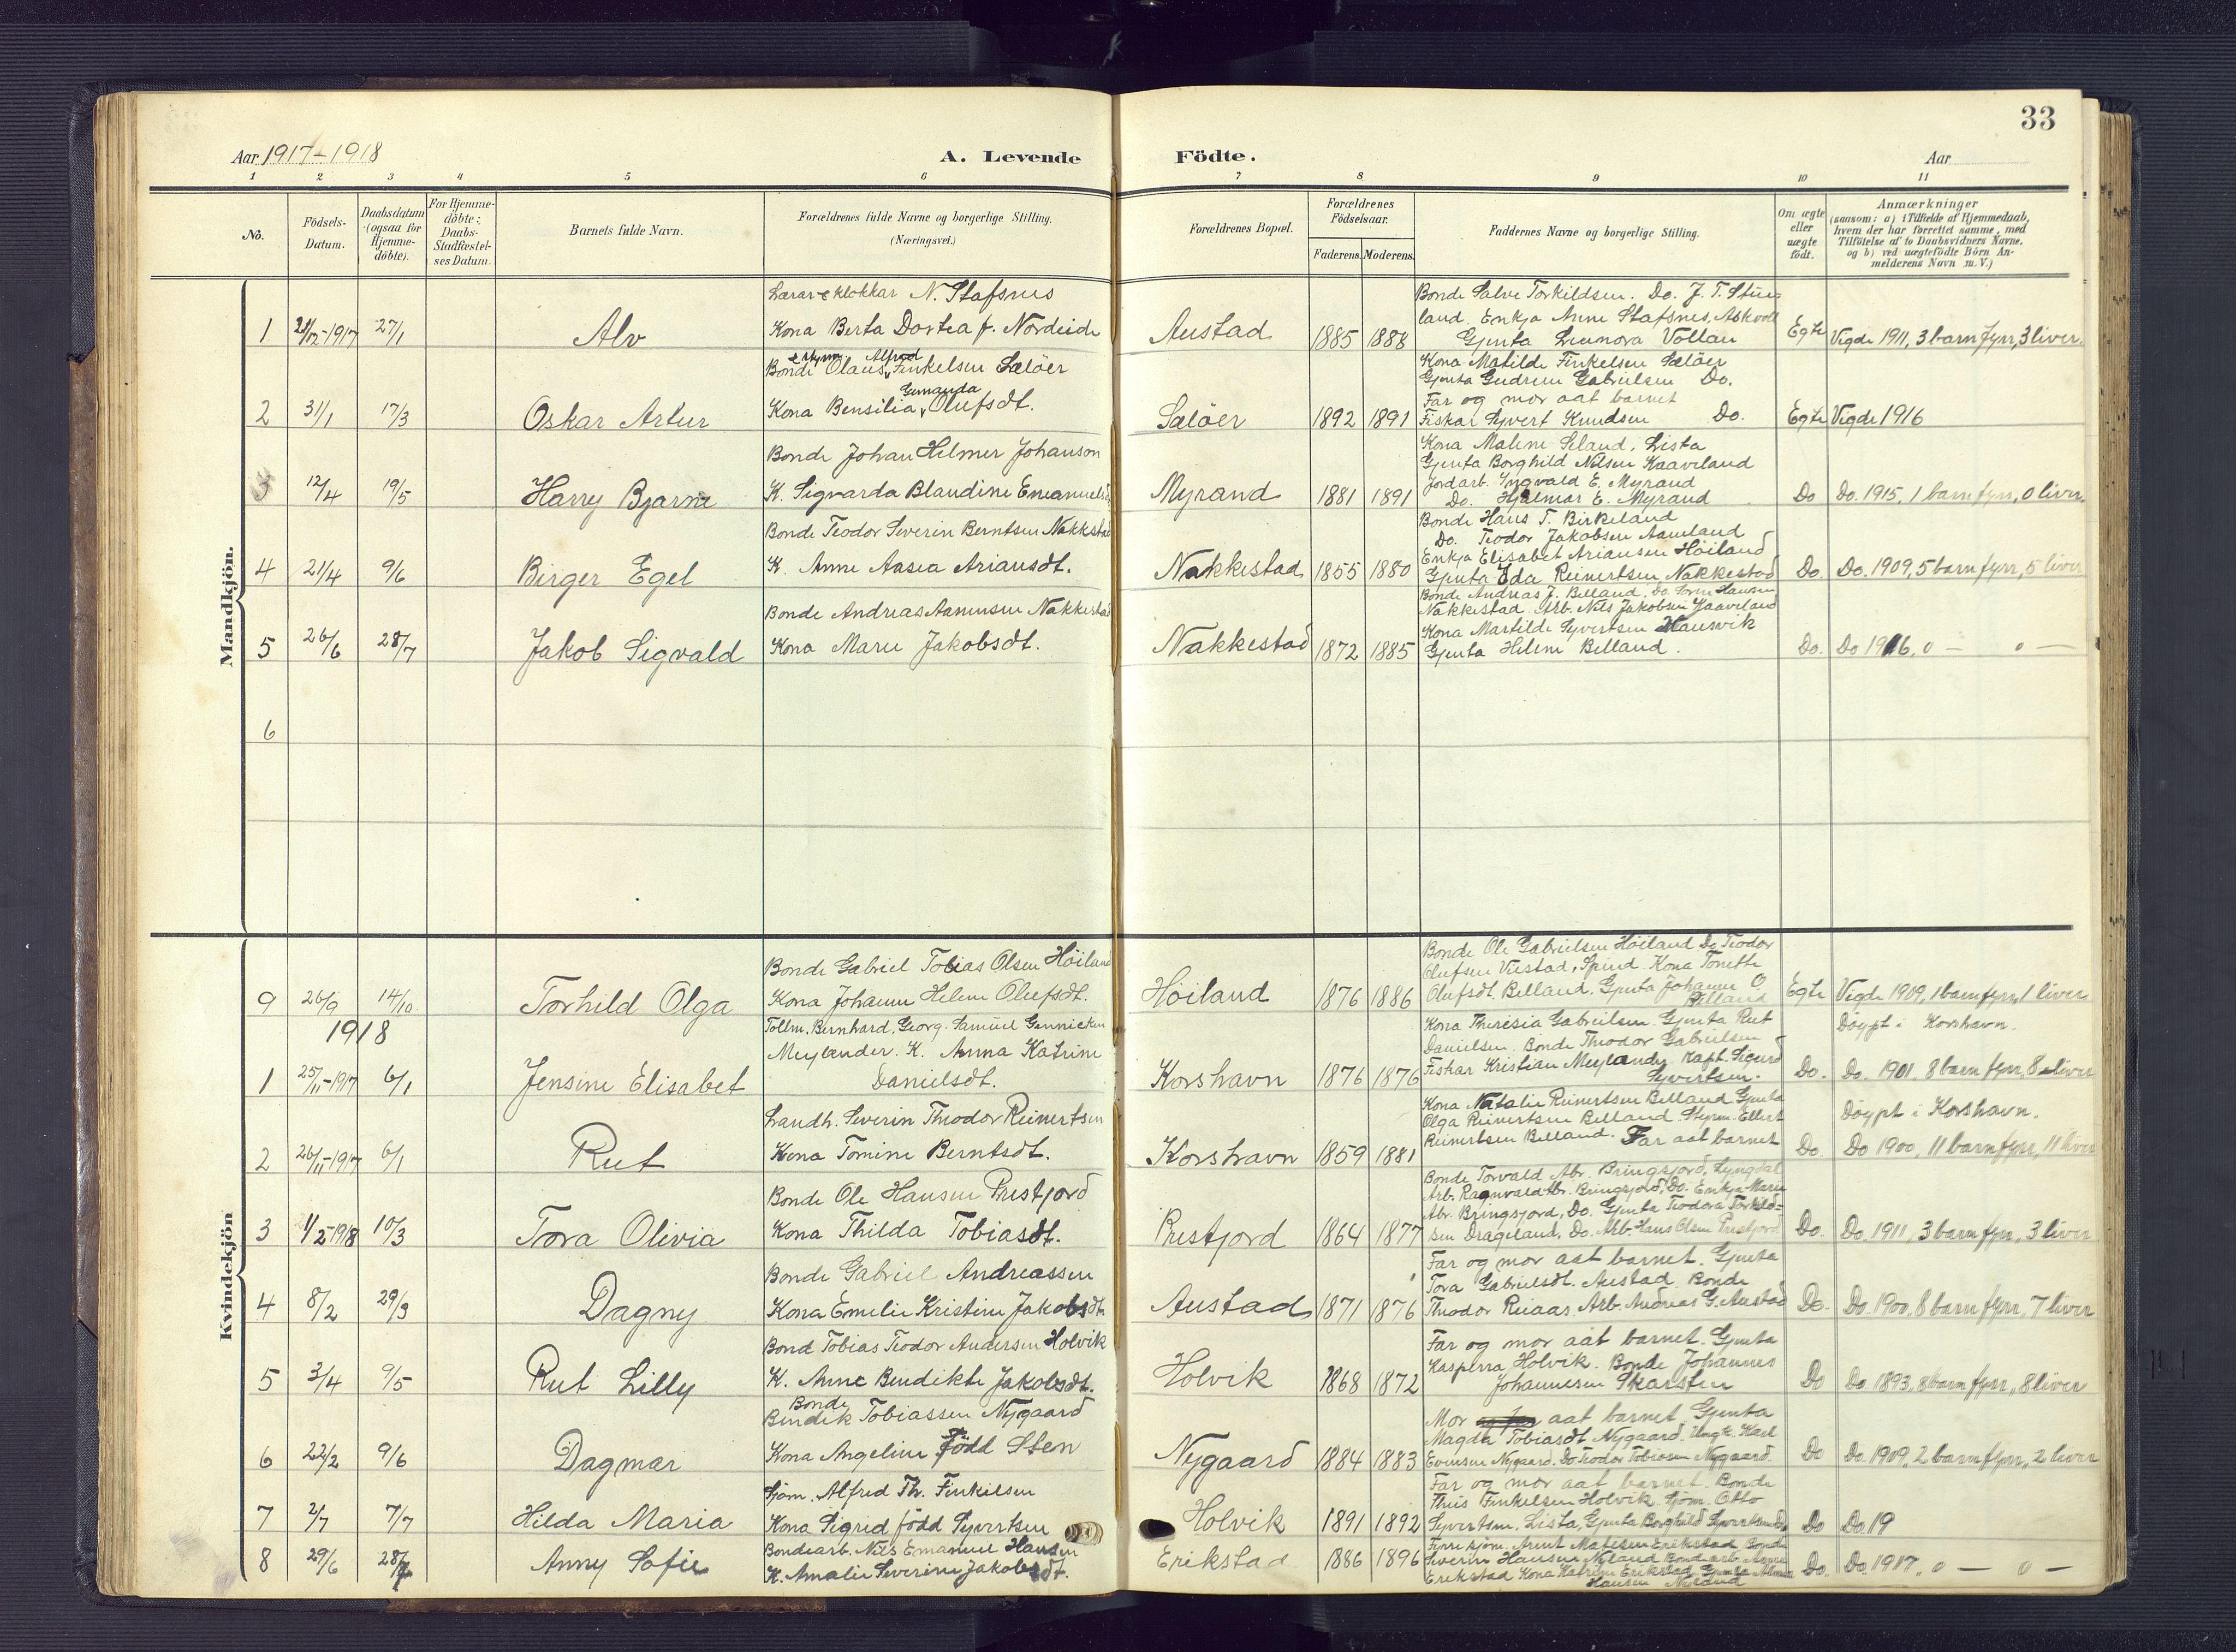 33
Aar 1917-1918
A. Levende
Födte.
Aar
1 2 3 4 5 6 7 8 9 10 11
No.
Födsels-Datum.
Daabsdatum (ogsaa for Hjemme-döbte).
For Hjemme-döbte: Daabs-Stadfæstel-ses Datum.
Barnets fulde Navn.
Forældrenes fulde Navne og borgerlige Stilling.
(Næringsvei.)
Forældrenes Bopæl.
Forældrenes Födselsaar.
Faderens. Moderens.
Faddernes Navne og borgerlige Stilling.
Om ægte eller uægte födt.
Anmærkninger
(saasom: a) i Tilfælde af Hjemmedaab,
hvem der har forrettet samme, med
Tilföielse af to Daabsvidners Navne,
og b) ved uægtefödte Börn An-
melderens Navn m. V.)
Mandkjön.
1 21/12-1917 27/1 Alv
Lærar e klokkar N. Stafsnes
Kona Berta Dortea f. Nordeide
Austad 1885 1888
Bonde Salve Torkildsen. Do. J. T. Stue
land. Enkja Anne Stafsnes, Askvoll
Gjenta Leonora Vollan
Egte Vigde 1911, 3 barn fyrr, 3 liver.
2 31/1 17/3 Oskar Artur
e styrm. Alfred
Bonde Olaus Finkelsen Sælöer
Gemanda
Kona Bensilia Olufsdt.
Sælöer 1892 1891
Kona Matilde Finkelsen Sælöer
Gjenta Gudrun Gabrielsen Do.
Far og mor aat barnet
Fiskar Syvert Knudsen Do.
Egte Vigde 1916
3 12/4 19/5 Harry Bjarne
Bonde Johan Helmer Johanson
K. Sigvarda Blandine Emanuelsd
Myrand 1881 1891
Kona Malene Seland, Lista
Gjenta Borghild Nilsen Kaaviland
Jordarb. Ingvald E. Myrand
Do. Hjalmar E. Myrand
Do Do. 1915, 1 barn fyrr, 0 liver
4 21/4 9/6 Birger Egel
Bonde Teodor Severin Berntsen Nakkestad
K. Anne Aasea Ariansdt.
Nakkestad 1855 1880
Bonde Hans T. Birkeland
Do. Teodor Jakobsen Aameland
Enkja Elisabet Ariansen Höiland
Gjenta Ida Reinertsen Nakkestad
Do. Do. 1909, 5 barn fyrr, 5 liver
5 26/6 28/7 Jakob Sigvald
Bonde Andreas Aanensen Nakkestad
Kona Marie Jakobsdt.
Nakkestad 1872 1885
Bonde Andreas J. Belland. Do. Sören Hansen
Nakkestad. Arb. Nils Jakobsen Kaaviland
Kona Martilde Syvertsen Hausvik
Gjenta Helene Belland.
Do. Do 1916, 0 — 0 —
6
Kvindekjön
9 26/9 14/10 Torhild Olga
Bonde Gabriel Tobias Olsen Höiland
Kona Johanne Helene Olufsdt.
Höiland 1876 1886
Bonde Ole Gabrielsen Höiland Do Teodor
Olufsen Viestad, Spind. Kona Tonette
Olufsdt. Belland. Gjenta Johanne O.
Belland
Egte Vigde 1909, 1 barn fyrr, 1 liver
1918
1 25/11-1917 6/1 Jensine Elisabet
Tollm. Bernhard. Georg. Samuel Gennicken
Meylænder. K. Anna Katrine
Danielsdt.
Korshavn 1876 1876
Kona Theresia Gabrielsen. Gjenta Rut
Danielsen. Bonde Theodor Gabrielsen
Fiskar Kristian Meylænder Kapt. Sigurd
Syvertsen.
Do. Döypt i Korshavn.
Do. 1901. 8 barn fyrr, 8 liver
2 26/11-1917 6/1 Rut
Landh. Severin Theodor Reinertsen
Kona Tomine Berntsdt.
Korshavn 1859 1881
Kona Natalie Reinertsen Belland Gjenta
Olga Reinertsen Belland. Styrm. Ellert
Reinertsen Belland. Far aat barnet
Do. Döypt i Korshavn.
Do 1900, 11 barn fyrr, 11 liver
3 1/2-1918 10/3 Tora Olivia
Bonde Ole Hansen Prestjord
Kona Thilda Tobiasdt.
Prestjord 1864 1877
Bonde Torvald Abr. Bringsjord, Lyngdal
Arb. Ragnvald Abr. Bringsjord, Do. Enkja Marie
Abr. Bringsjord, Do. Gjenta Teodora Torkild-
sen Drageland, Do. Arb. Hans Olsen Prestjord
Do. Do. 1911, 3 barn fyrr, 3 liver
4 8/2 29/3 Dagny
Bonde Gabriel Andreassen
Kona Emelie Kristine Jakobsdt.
Austad 1871 1876
Far og mor aat barnet. Gjenta
Tora Gabrielsdt. Austad. Bonde
Theodor Reiaas Arb. Andreas G. Austad
Do. Do. 1900, 8 barn fyrr, 7 liver
5 3/4 9/5 Rut Lilly
Bond Tobias Teodor Andersen Holvik
K. Anne Bendikte Jakobsdt.
Holvik 1868 1872
Far og mor aat barnet. Gjenta
Kasperra Holvik. Bonde Johannes
Johannesen Skarsten
Do Do 1893, 8 barn fyrr, 8 liver
6 22/2 9/6 Dagmar
Bonde
Bendik Tobiassen Nygaard
Kona Angeline född Steen
Nygaard 1884 1883
Mor og far aat barnet. Gjenta
Magda Tobiasdt Nygaard. Ungk. Karl
Evensen Nygaard. Do Teodor Tobiasen Nygaard
Do Do. 1909, 2 barn fyrr, 2 liver
7 2/7 7/7 Hilda Maria
Sjöm. Alfred Th. Finkelsen
Kona Sigrid född Syvertsen
Holvik 1891 1892
Far og mor aat barnet. Bonde
Thiis Finkelsen Holvik. Sjöm. Otto
Syvertsen, Lista, Gjenta Borghild Syvertsen Do
Do Do. 19
8 29/6 28/7 Anny Sofie
Bondearb. Nils Emanuel Hansen
K. Amalie Severine Jakobsdt.
Erikstad 1886 1896
Arent Matisen Erikstad Bonde
Severin Hansen Nyland
Erikstad Kona Katrine Erikstad Gjenta
Hansen Nyland
Do. Do. 1917, 0 — 0 —